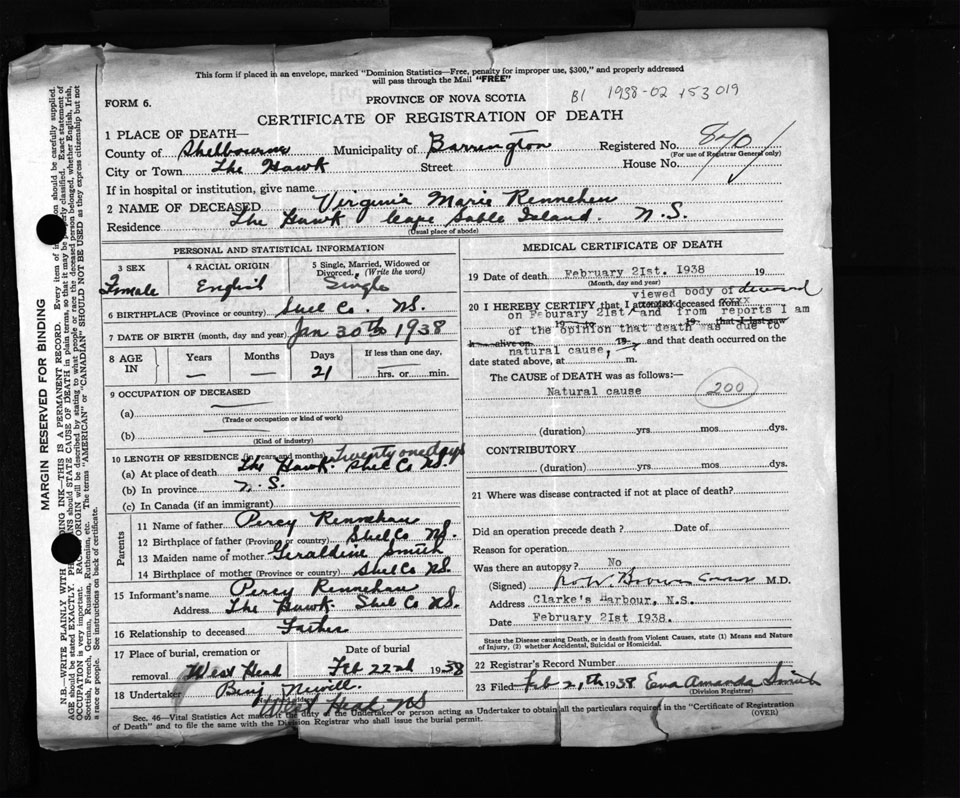 This form if placed in an envelope, marked "Dominion Statistics—Free, penalty for improper use, $300," and properly addressed
will pass through the Mail "FREE"
FORM 6.
PROVINCE OF NOVA SCOTIA
B1 1938-02 153019
CERTIFICATE OF REGISTRATION OF DEATH
1 PLACE OF DEATH—
County of Shelbourne Municipality of Barrington Registered No. 840
(For use of Registrar General only)
City or Town The Hawk Street House No.
If in hospital or institution, give name
2 NAME OF DECEASED Virginia Marie Rennehan
Residence The Hawk Cape Sable Island. N.S.
(Usual place of abode)
PERSONAL AND STATISTICAL INFORMATION
3 SEX 4 RACIAL ORIGIN 5 Single, Married, Widowed or Divorced. (Write the word)
Female English Single
6 BIRTHPLACE (Province or country) Shel Co. NS.
7 DATE OF BIRTH (month, day and year) Jan 30th 1938
8 AGE IN Years Months Days If less than one day,
— — 21 hrs. or min.
9 OCCUPATION OF DECEASED
(a)
(Trade or occupation or kind of work)
(b)
(Kind of industry)
10 LENGTH OF RESIDENCE (in years and months) twenty one days
(a) At place of death The Hawk. Shel Co NS.
(b) In province N.S.
(c) In Canada (if an immigrant)
Parents
11 Name of father Percy Rennehan
12 Birthplace of father (Province or country) Shel Co NS.
13 Maiden name of mother Geraldine Smith
14 Birthplace of mother (Province or country) Shel Co NS.
15 Informant's name Percy Rennehan
Address The Hawk Shel Co NS.
16 Relationship to deceased Father
17 Place of burial, cremation or removal Date of burial
West Head Feb 22nd 1938
18 Undertaker Benj Newell
West Head NS
MEDICAL CERTIFICATE OF DEATH
19 Date of death February 21st. 1938 19
(Month, day and year)
viewed body of deceased
20 I HEREBY CERTIFY, that I attended deceased from xxxx
on Feburary 21st and from reports I am
19 to 19 that I last saw
of the opinion that death was due to
h alive on 19 and that death occurred on the
natural cause,
date stated above, at m.
The CAUSE of DEATH was as follows:—
Natural cause 200
(duration) yrs. mos. dys.
CONTRIBUTORY
(duration) yrs. mos. dys.
21 Where was disease contracted if not at place of death?
Did an operation precede death? Date of
Reason for operation
Was there an autopsy? No
(Signed) M.D.
Address Clarke's Harbour, N.S.
Date February 21st 1938.
State the Disease causing Death, or in death from Violent Causes, state (1) Means and Nature
of Injury, (2) whether Accidental, Suicidal or Homicidal.
22 Registrar's Record Number
23 Filed Feb 21th 1938 Eva Amanda Smith
(Division Registrar)
Sec. 46—Vital Statistics Act makes it the duty of the Undertaker or person acting as Undertaker to obtain all the particulars required in the "Certificate of Registration
of Death" and to file the same with the Division Registrar who shall issue the burial permit.
(OVER)
MARGIN RESERVED FOR BINDING
N.B.—WRITE PLAINLY WITH ING INK—THIS IS A PERMANENT RECORD. Every item of in on should be carefully supplied.
AGE should be stated EXACTLY. PH NS should STATE CAUSE OF DEATH in plain terms, so that it may be properly classified. Exact statement of
OCCUPATION is very important. RAC ORIGIN will be described by stating to what people or race the deceased person belonged, whether English, Irish,
Scottish, French, German, Russian, Ruthenian, etc. The terms "AMERICAN" or "CANADIAN" SHOULD NOT BE USED as they express citizenship but not
a race or people. See instructions on back of certificate.